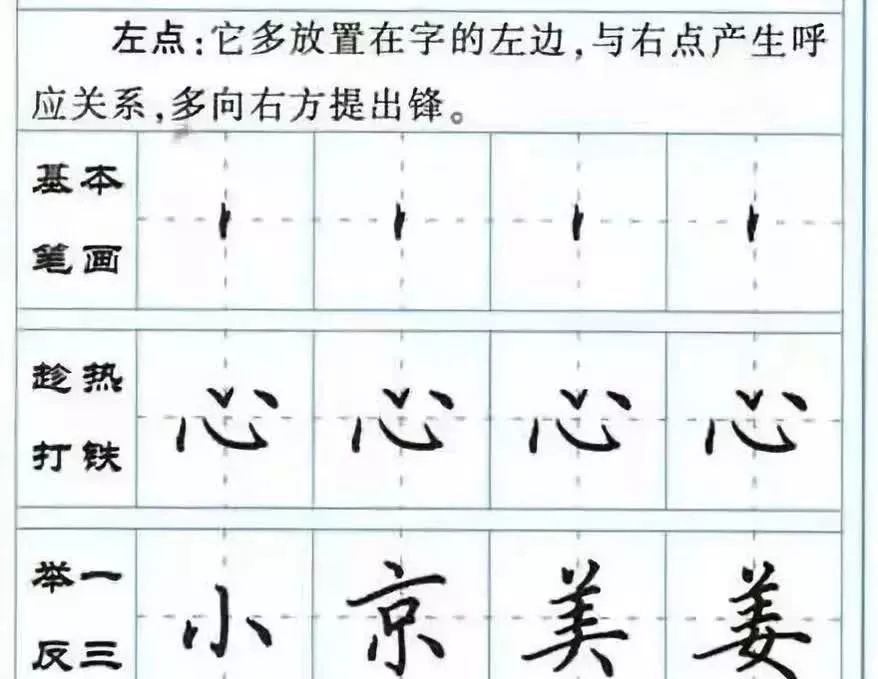 左点:它多放置在字的左边,与右点产生呼
应关系,多向右方提出锋。
基本
笔画
趁热
打铁
心 心 心 心
举一
反三
小 京 美 姜